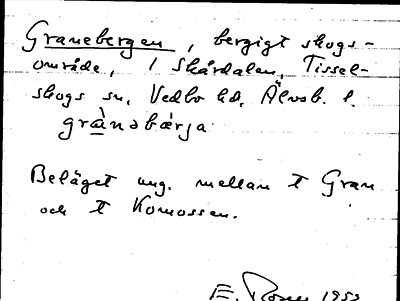 Granebergen, bergigt skogs-
område, i Skårdalen, Tissel-
skogs sn, Vedbo hd, Älvsb. l.
grànəbæ̀rja
Beläget ung. mellan t Gran
och t Komossen.
E. 1953